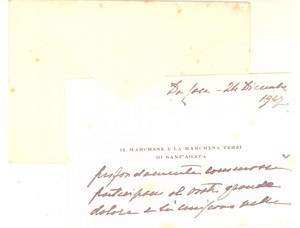 Da Casa - 24 Dicembre
1947
IL MARCHESE E LA MARCHESA TERZI
DI SANT'AGATA
profondamente commossi
partecipano al vostro grande
dolore e si uniscono nelle